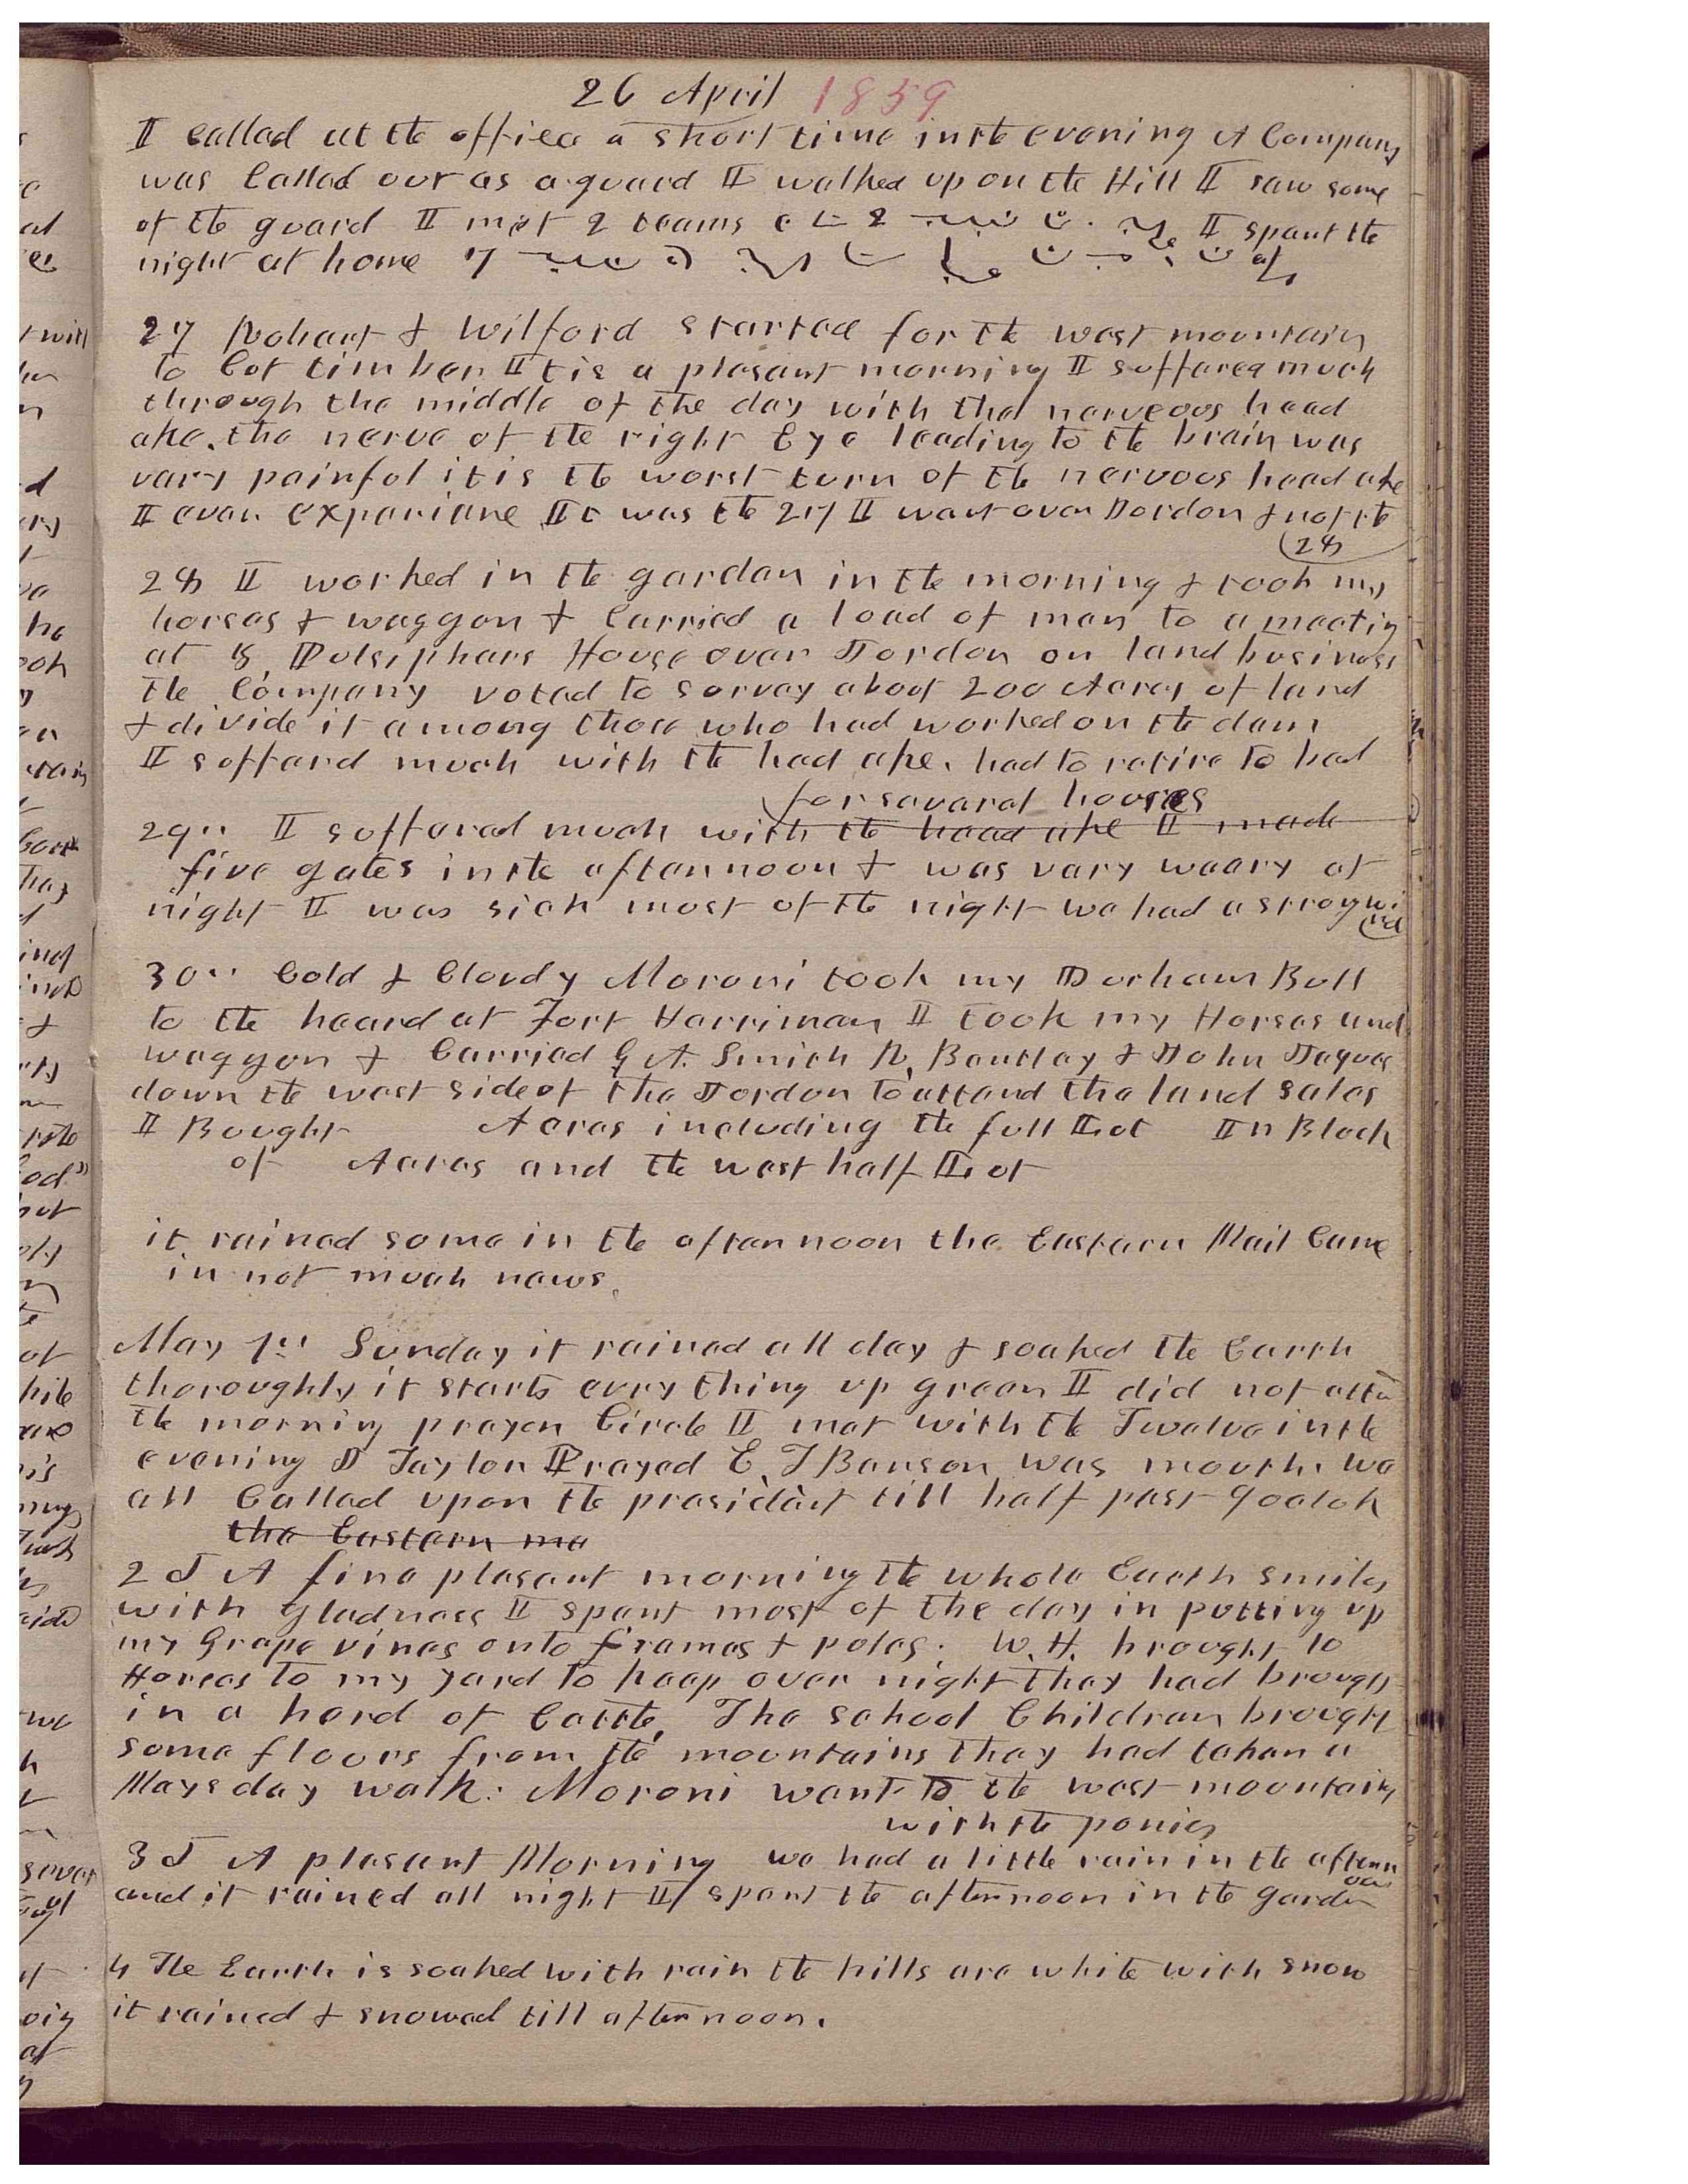 26 April 1859
I called at the office a short time in the evening A Company
was Called out as a guard I walked up on the Hill I saw some
of the guard I met 2 teams I spent the
night at home
27 Robert & Wilford started for the west mountain
to Cot timber It is a plesant morning I suffered much
through the middle of the day with the nerveous head
ake. the nerve of the right Eye leading to the brain was
vary painful it is the worst turn of the nervous head ake
I ever experiance It was the 27 I went over Jordon & not the
28
28 I worked in the garden in the morning & took my
horses & waggon & Carried a load of men to a meetig
at Pulsiphers House over Jordon on land business
the Company voted to survey about 200 Acres of land
& divide it among those who had worked on the dam
I sufferd much with the had ake. had to retire to bed
for several hours
29" I suffered much with the head ake I made
five gates in the afternoon & was vary weary at
night I was sick most of the night we had a strong wi
nd
30" Cold & Cloudy Moroni took my Durham Bull
to the heard at Fort Harriman I took my Horses and
waggon & Carried G A. Smith R. Bentley & John Jaques
down the west side of the Jordon to attend the land sales
I Bought Acres including the full Lot In Block
of Acres and the west half Lot
it rained some in the afternoon the Eastern Mail Came
in not much news.
May 1st Sunday it rained all day & soaked the Earth
thoroughly it starts evry thing up green I did not atten
the morning prayer Circle I met with the Twelve in the
evening J Taylor Prayed E. T Benson was mouth. we
all Called upon the presidet till half past 9 oclok
the Eastern ma
2d A fine plesant morning the whole Earth smiles
with gladness I spent most of the day in putting up
my Grape vines onto frames & poles. W. H. brought 10
Horses to my yard to keep over night they had brought
in a herd of Cattle, The school Children brought
some flours from the mountains they had taken a
Mays day walk: Moroni went to the west mountains
with the ponies
3d A plesant Morning we had a little rain in the aftern
oon
and it rained all night I spent the afternoon in the garden
4 The Earth is soaked with rain the hills are white with snow
it rained & snowed till afternoon.